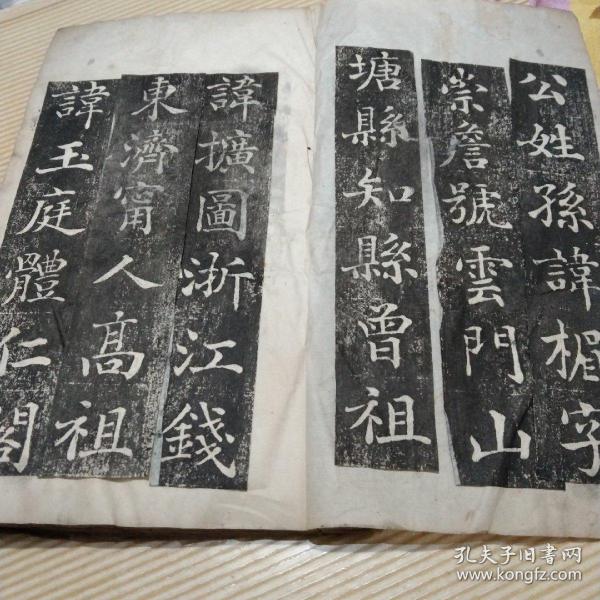 公姓孫諱楣字
崇詹號雲門山
塘縣知縣曾祖
諱擴圖浙江錢
東濟甯人高祖
諱玉庭體仁閣
孔夫子旧书网
www.kongfz.com